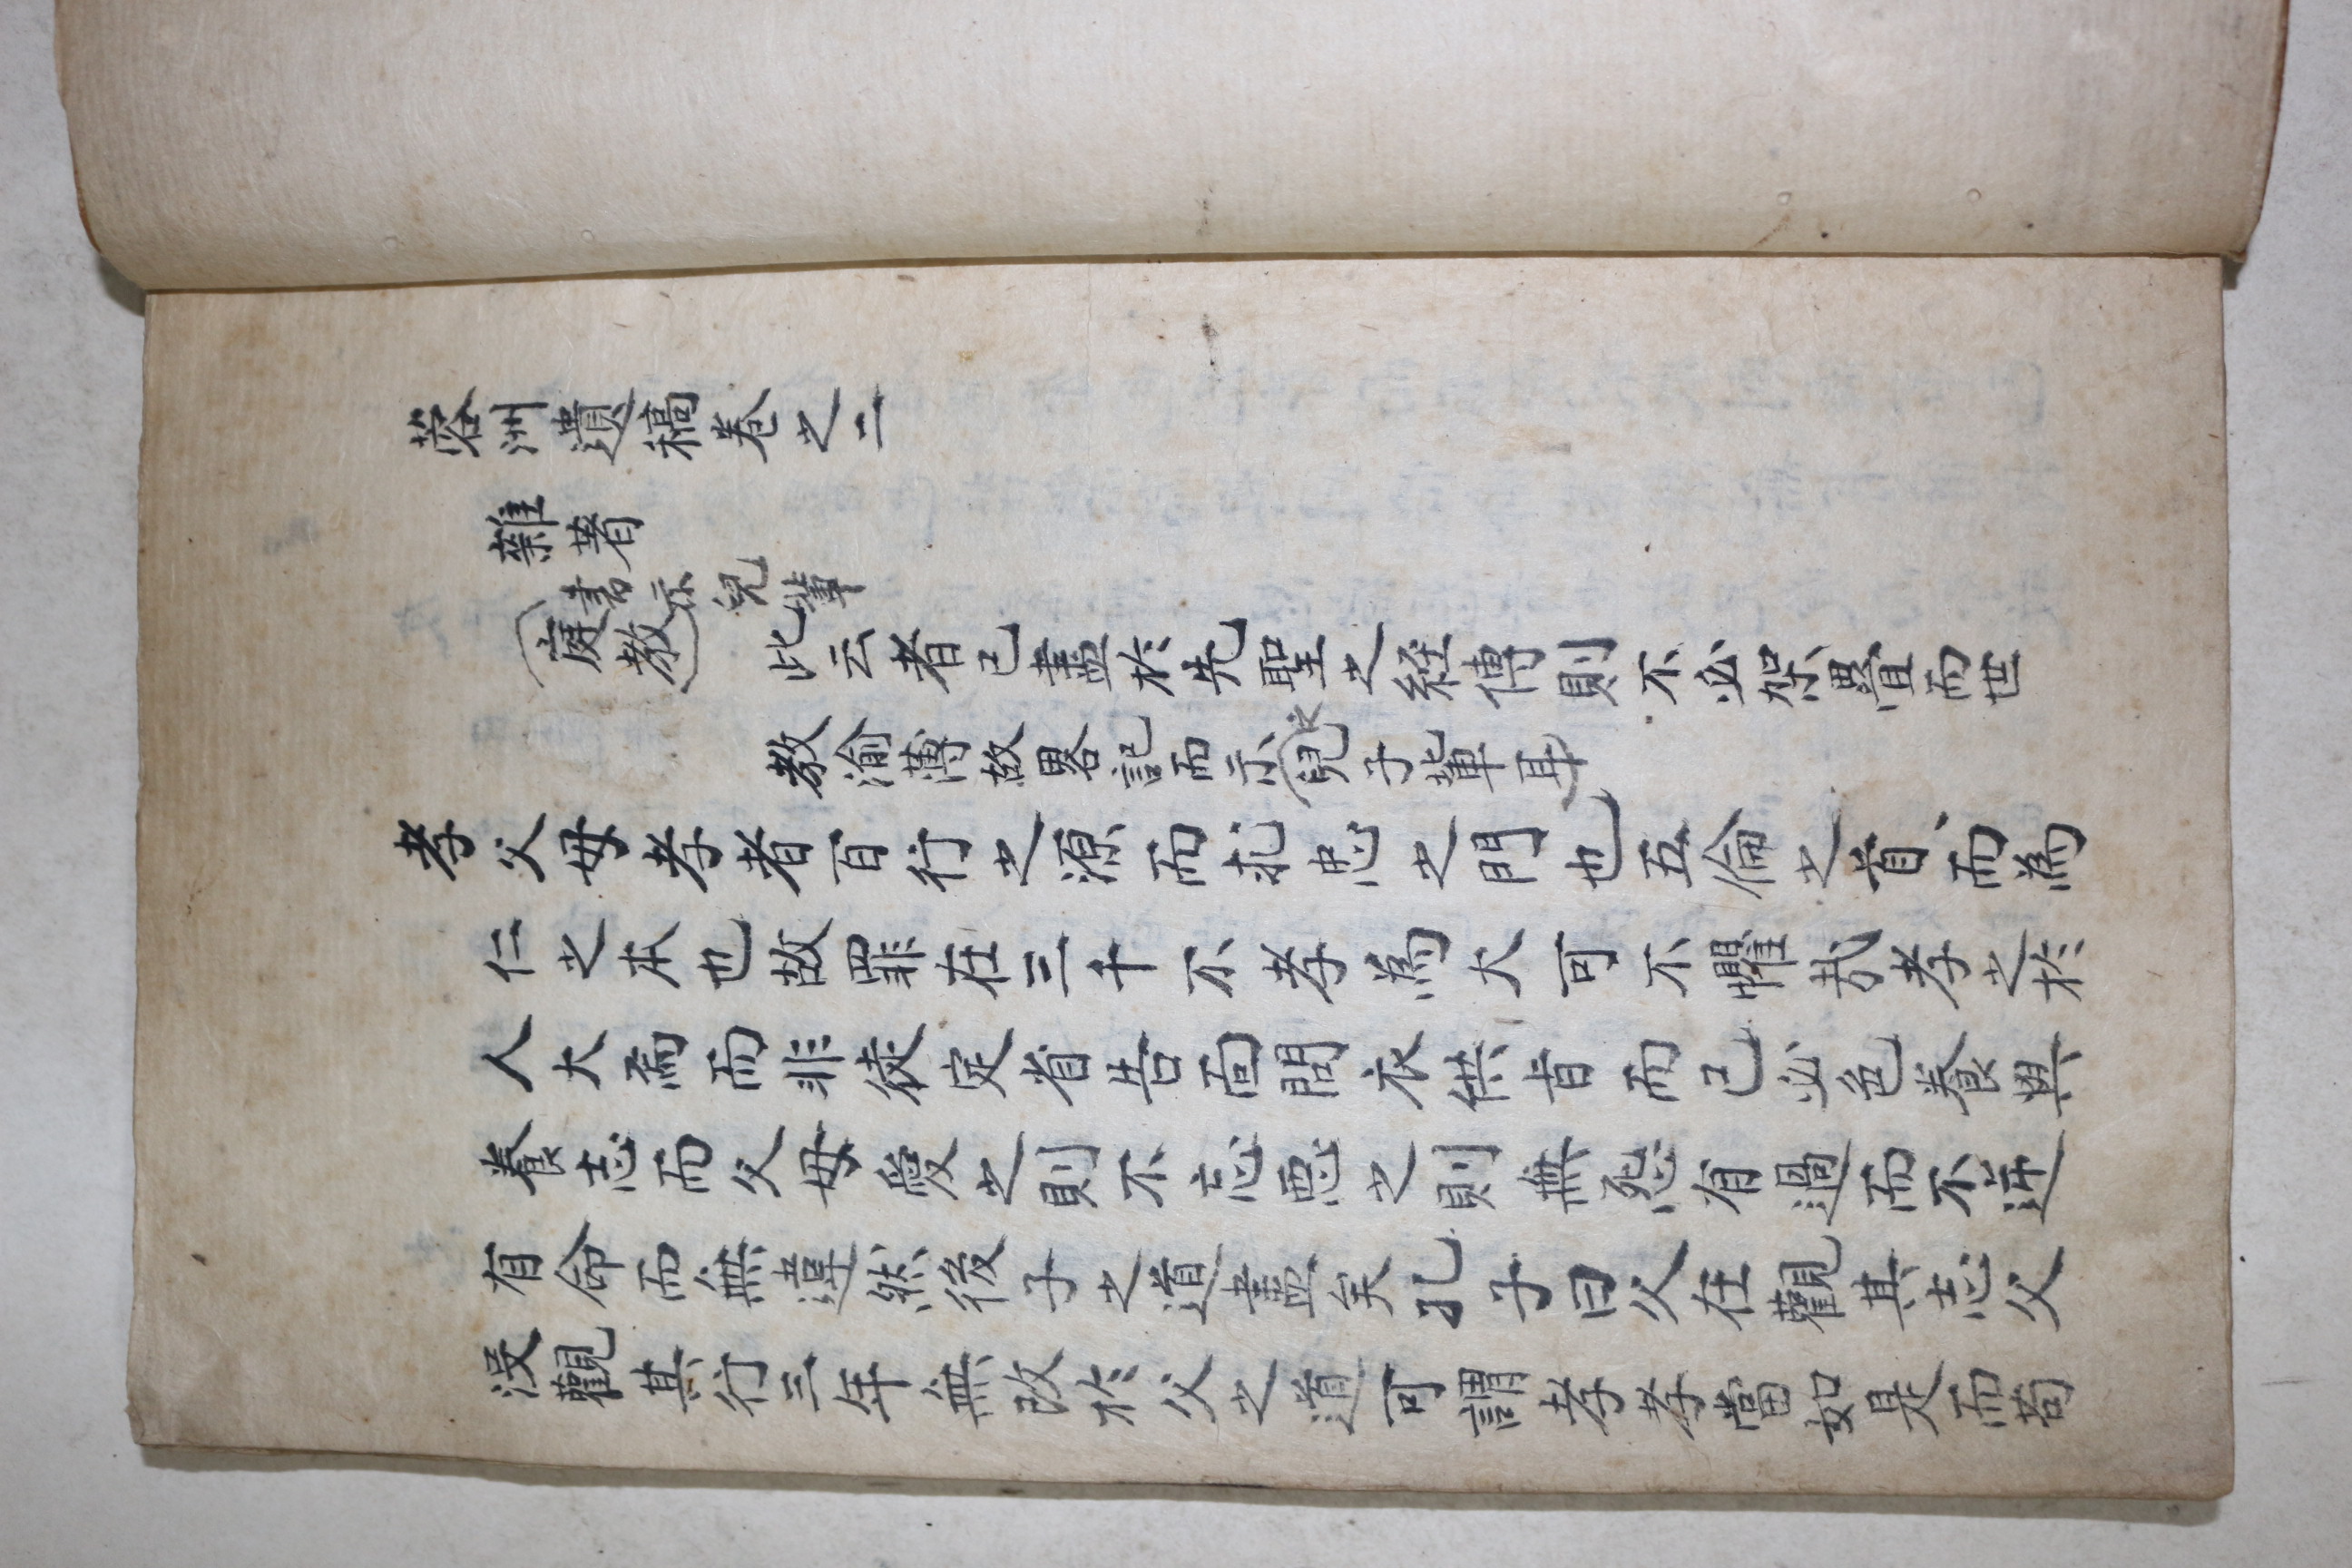 蓉洲遺稿卷之二
雜著
書示兒輩
庭教 此云者已盡於先聖之経傳則不必架疊而世
教渝薄故畧記而示兒子輩耳
孝父母孝者百行之源而求忠之門也五倫之首而為
仁之本也故罪在三千不孝為大可不懼哉孝之於
人大焉而非徒定省告面問衣供旨而已必色養與
養志而父母愛之則不忘惡之則無怨有過而不逆
有命而無違然後子之道盡矣孔子曰父在觀其志父
沒觀其行三年無改於父之道可謂孝孝當如是而苟